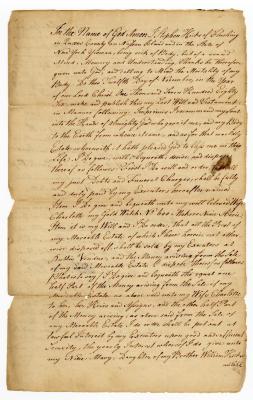 In the Name of God Amen. I Stephen Hicks of Flushing
in Queens County on Nassau Island and in the State of
New York Yeoman, being sick of Body, but of sound
Mind, Memory and Understanding, Thanks be therefore
given unto God, and calling to Mind the Mortality of my
Body. Do this Twelfth Day of November, in the Year
of our Lord Christ One Thousand Seven Hundred Eighty
make and publish this my Last Will and Testament
in Manner following. Imprimis, I recommend my Soul
into the Hands of Almighty God who gave it, and my Body
to the Earth from whence it came, and as for that worldly
Estate wherewith it hath pleased God to bless me in this
Life, I do give, will, bequeath, devise and dispose
thereof as follows. First, I will and order that all
my just Debts and funeral Charges, shall be fully
and duly paid by my Executors hereafter named
Item I do give and bequeath unto my well beloved Wife
Charlotte my Gold Watch
Item it is my Will and I do order, that all the Rest of
my Moveable Estate, of which I have herein, not other-
wise disposed of, shall be sold by my Executors at
Public Vendue, and the Money arising from the Sale
of my said Moveable Estate I dispose thereof as follows
that is to say, I do give and bequeath the equal one
half Part of the Money arising from the Sale of my
Moveable Estate as above said unto my Wife Charlotte
to her, her Heirs and Assigns, and the other half Part of
the Money arising, as above said from the Sale of
my Moveable Estate, I do order shall be put out at
lawful Interest by my Executors upon good and sufficient
Security, the yearly Interest whereof I do give unto
my Niece Mary, Daughter of my Brother William Hicks